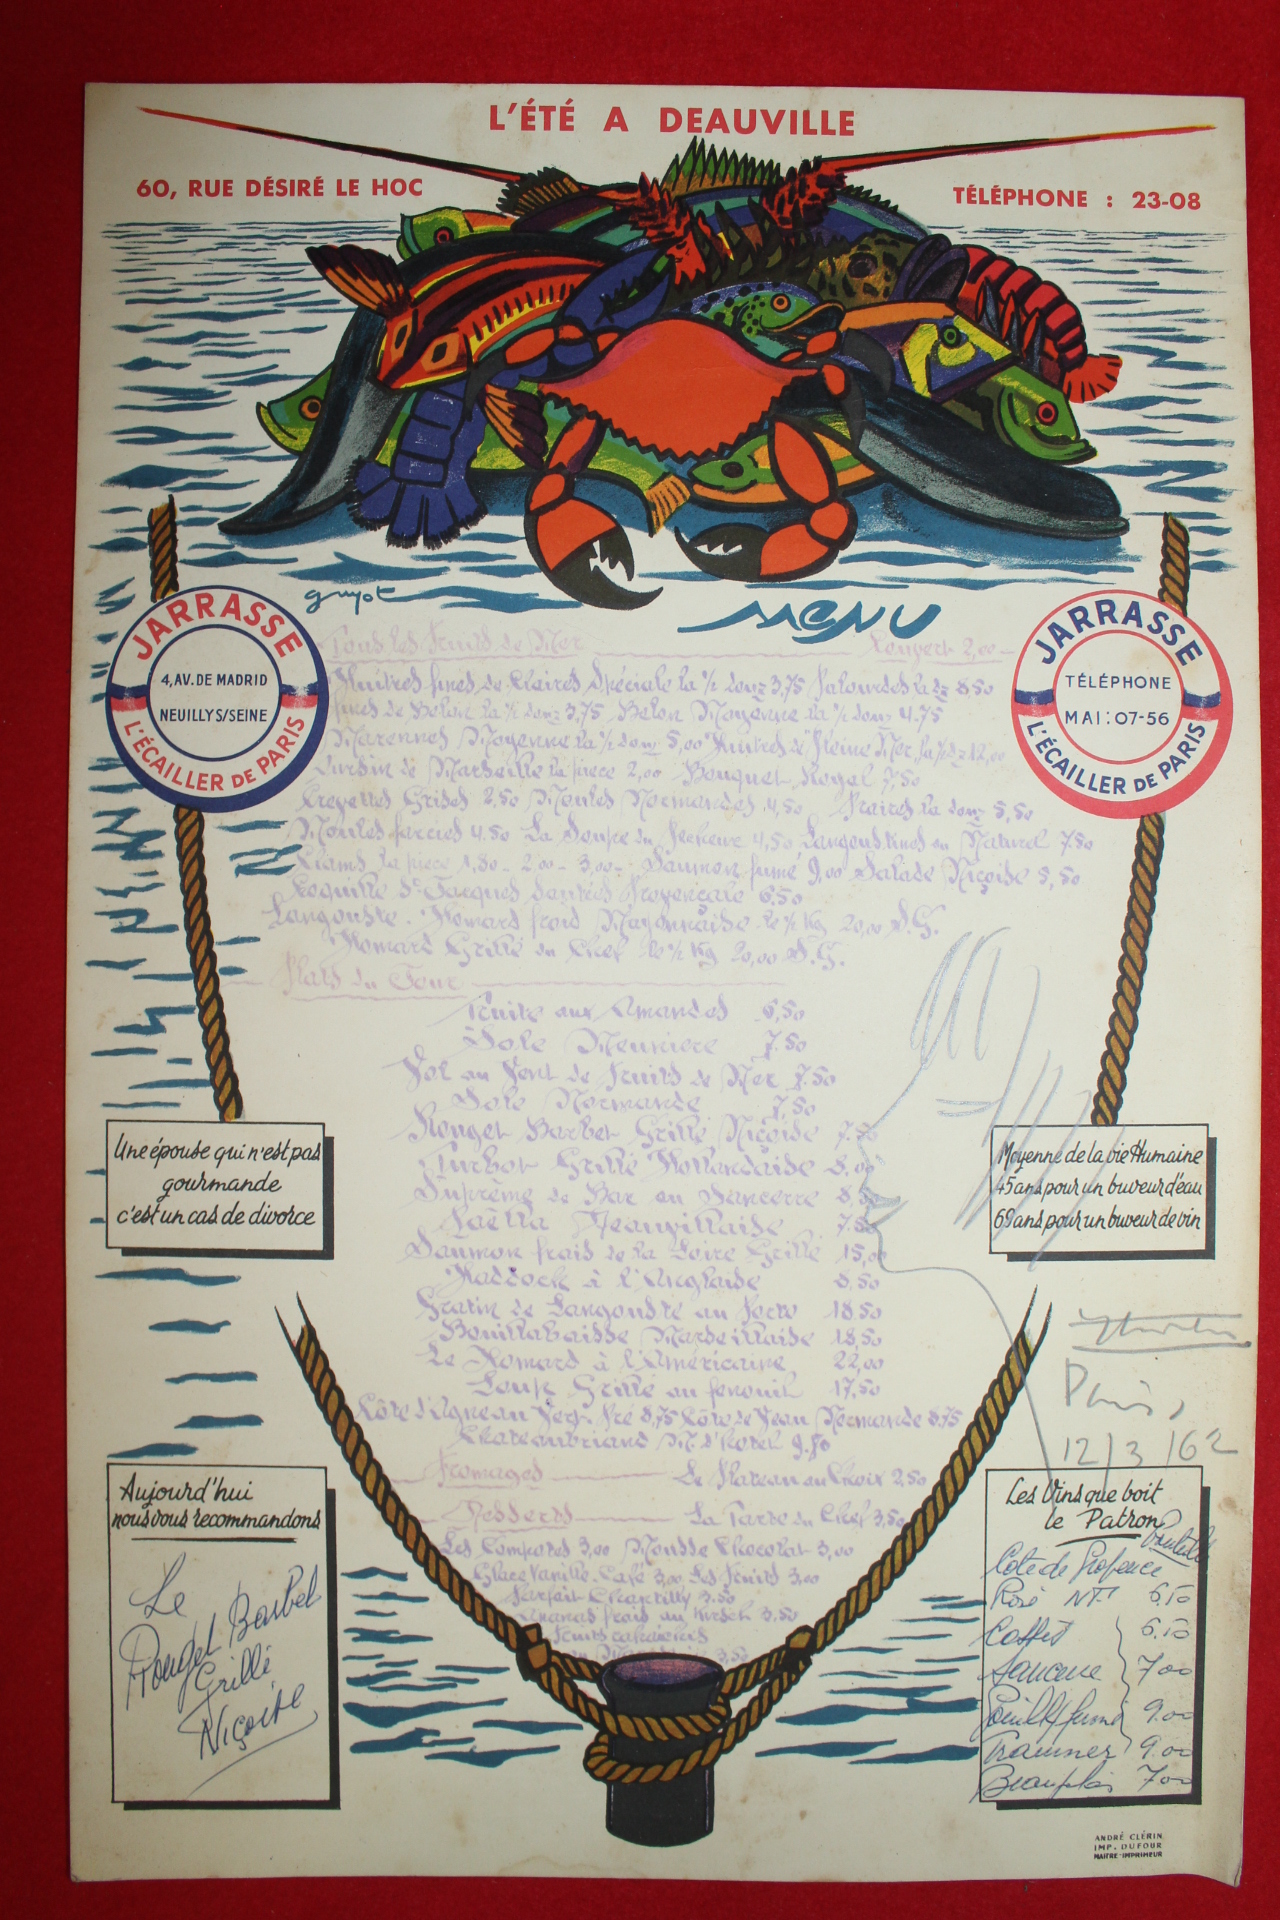 L'ÉTÉ A DEAUVILLE
60, RUE DÉSIRÉ LE HOC
TÉLÉPHONE : 23-08
guyot
MENU
JARRASSE
4, AV. DE MADRID
NEUILLY S/SEINE
L'ÉCAILLER DE PARIS
JARRASSE
TÉLÉPHONE
MAI : 07-56
L'ÉCAILLER DE PARIS
Tous les Fruits de Mer Couvert 2,00
Huîtres fines de Claires Spéciale la ½ douz 3,75 Palourdes la dz 8,50
fines de Belon la ½ douz 3,75 Belon Moyenne la ½ douz 4.75
Marennes Moyenne la ½ douz 5,00 Huîtres de Pleine Mer la ½ dz 12,00
Oursin de Marseille la pièce 2,00 Bouquet Royal 7,50
Crevettes Grises 2,50 Moules Normandes 4,50 Praires la douz 5,50
Moules farcies 4.50 La Soupe du Pêcheur 4,50 Langoustines au Naturel 7.50
Clams la pièce 1,80 - 2,00 - 3,00 - Saumon fumé 9,00 Salade Niçoise 5,50
Coquille St Jacques Provençale 6.50
Langouste - Homard froid Mayonnaise le ½ Kg 20,00 S.G.
Homard Grillé du Chef le ½ Kg 20,00 S.G.
Plats du Jour
Truite aux Amandes 6,50
Sole Meunière 7.50
Vol au Vent de Fruits de Mer 7.50
Sole Normande 7,50
Rouget Barbet Grillé Niçoise 7.50
Turbot Grillé Hollandaise 8.00
Suprême de Bar au Sancerre 8,50
Paëlla Deauvillaise 7.50
Saumon frais de la Loire Grillé 15,00
Haddock à l'Anglaise 8.50
Gratin de Langouste au Porto 18.50
Bouillabaisse Marseillaise 18,50
Le Homard à l'Américaine 22,00
Loup Grillé au fenouil 17,50
Côte d'Agneau Vert-Pré 8,75 Côte de Veau Normande 8,75
Chateaubriand M. d'hotel 9.80
Fromages Le Plateau au Choix 2,50
Desserts La Tarte du Chef 3,50
Les Compotes 3,00 Mousse Chocolat 3,00
Glace Vanille - Café 3,00 Les Fruits 3,00
Parfait Chantilly 3.50
Ananas frais au Kirsch 3.50
Fruits rafraichis
3,50
Une épouse qui n'est pas
gourmande
c'est un cas de divorce
Moyenne de la vie Humaine
45 ans pour un buveur d'eau
69 ans pour un buveur de vin
Paris,
12/3/62
Aujourd'hui
nous vous recommandons
Le
Rouget Barbet
Grillé
Niçoise
Les Vins que boit
le Patron
Bouteille
Cote de Provence
Rosé 6.50
Cassis 6.50
Sancerre 7,00
Pouilly fumé 9.00
Traminer 9.00
Beaujolais 7.00
ANDRÉ CLÉRIN
IMP. DUFOUR
MAITRE-IMPRIMEUR